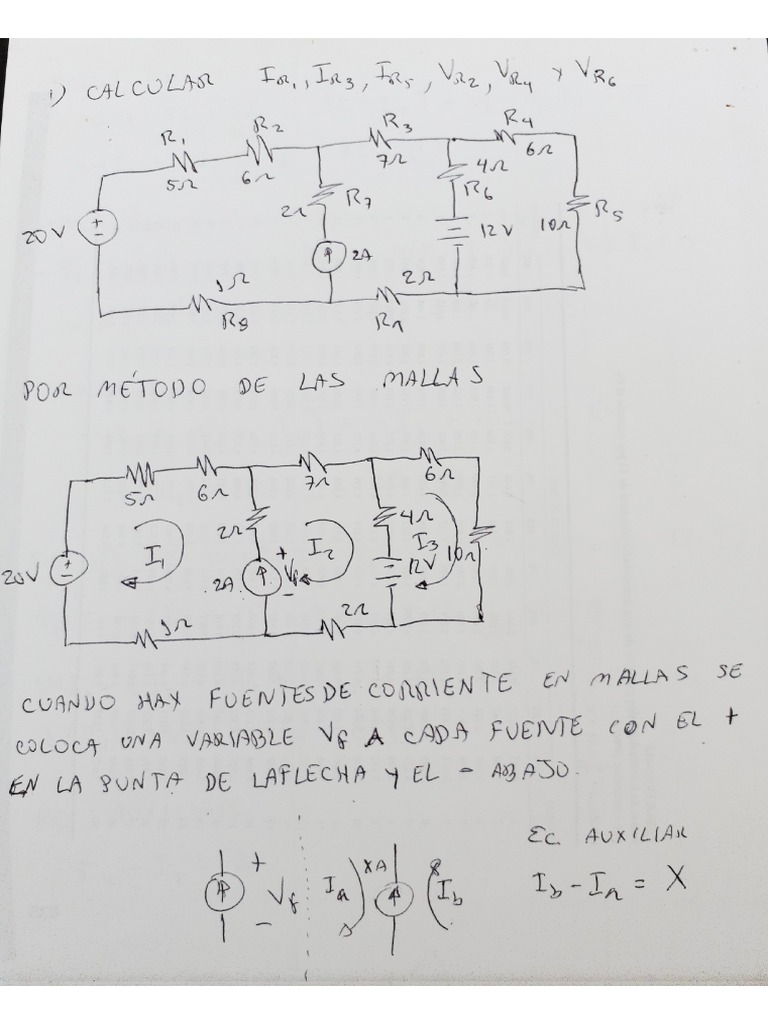 1) CALCULAR IR1, IR3, IR5, VR2, VR4 Y VR6
R1 R2 R3 R4
5Ω 6Ω 7Ω 6Ω
4Ω
R6
2Ω R7
20V + - 2A 12V 10Ω R5
1Ω 2Ω
R8
POR MÉTODO DE LAS MALLAS
5Ω 6Ω 7Ω 6Ω
2Ω 4Ω
I1 I2 I3 10Ω
20V + - 2A + Vf - 12V
1Ω 2Ω
CUANDO HAY FUENTES DE CORRIENTE EN MALLAS SE
COLOCA UNA VARIABLE Vf A CADA FUENTE CON EL +
EN LA PUNTA DE LA FLECHA Y EL - ABAJO.
EC. AUXILIAR
+ Vf - Ia XA Ib
Ib - Ia = X